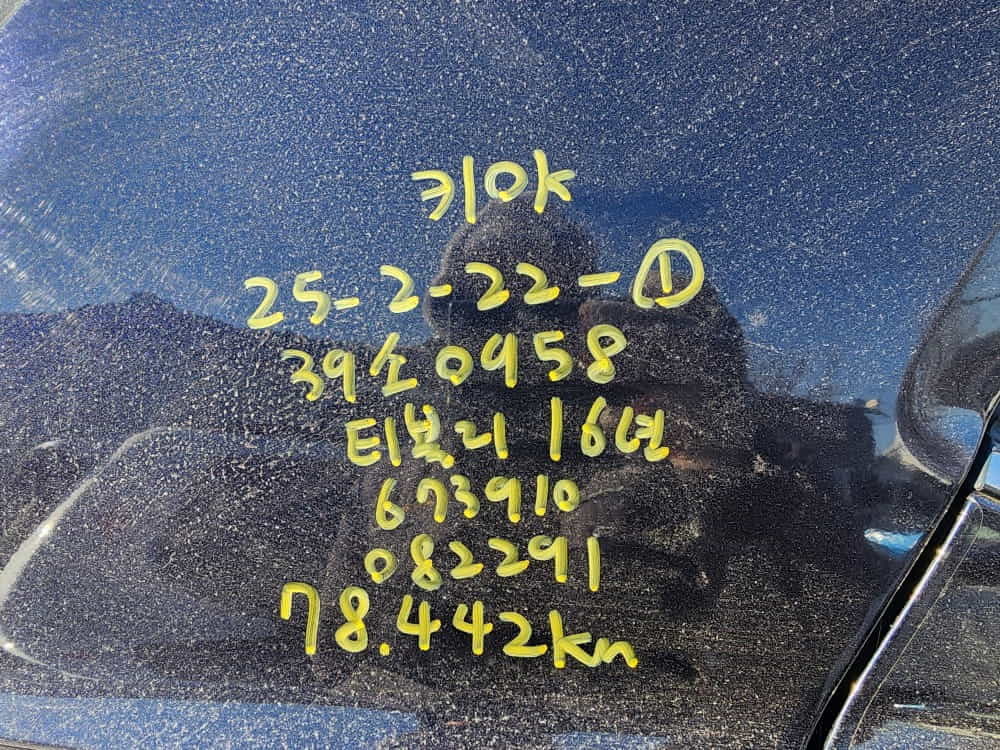 키OK
25-2-22-①
39소0958
티볼리 16년
673910
082291
78.442km